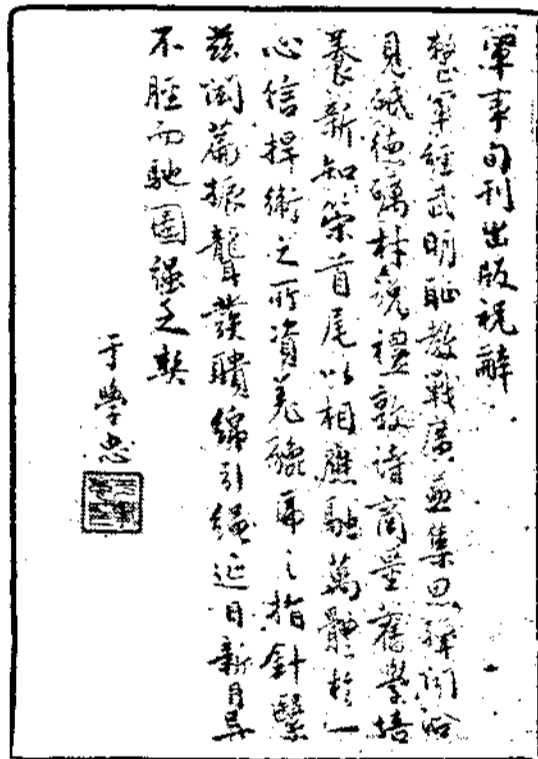 軍事旬刊出版祝辭
整軍經武明恥教戰廣益集思彈聞洽
見砥德礪材說禮敦詩商量舊學培
養新知策首尾以相應融萬聽於一
心信捍衛之所資羌繩馬之指針繄
茲閎篇振聾發聵綿引緜延日新月異
不脛而馳圖強之契
于學忠